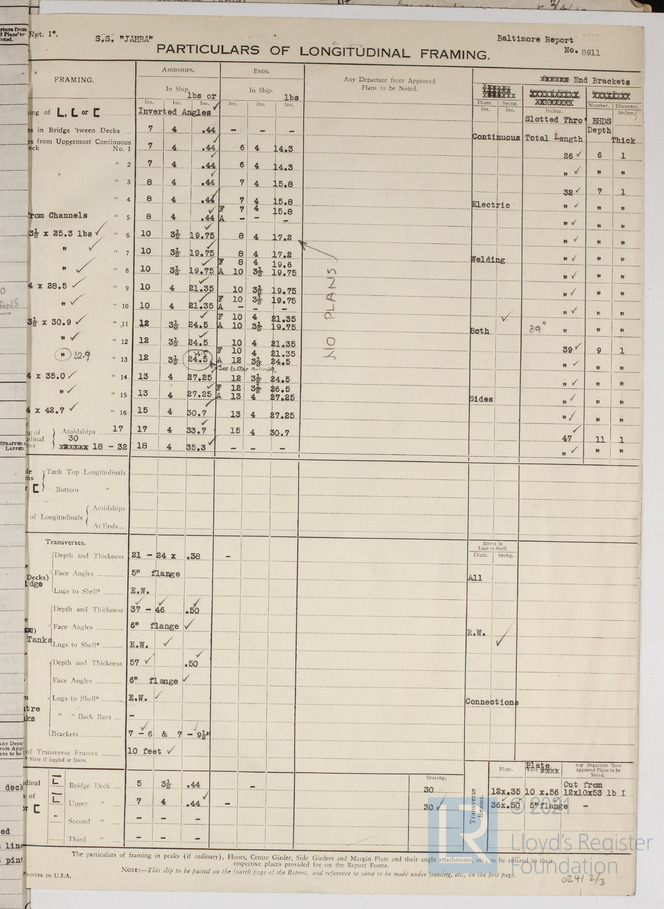 Rpt. 1*. S.S. "JABRA" Baltimore Report
No. 8911
PARTICULARS OF LONGITUDINAL FRAMING.
FRAMING. AMIDSHIPS. ENDS. Any Departure from Approved Plans to be Noted. End Brackets
In Ship. lbs or In Ship. lbs
Ins. Ins. Ins. Ins. Ins. Diam. Spcng. Number. Diameter.
L, L or C Inverted Angles Slotted Thro' BHDS
in Bridge 'tween Decks 7 4 .44 - - - Continuous Total Length Depth Thick
from Uppermost Continuous
No. 1 7 4 .44 6 4 14.3 26 ✓ 6 1
" 2 7 4 .44 6 4 14.3 " ✓ " "
" 3 8 4 .44 7 4 15.8 32 ✓ 7 1
" 4 8 4 .44 7 4 15.8 Electric " ✓ " "
from Channels " 5 8 4 .44 F 7 4 15.8
A - - - " ✓ " "
3½ x 25.3 lbs ✓ " 6 10 3½ 19.75 8 4 17.2 " ✓ " "
" ✓ " 7 10 3½ 19.75 8 4 17.2 Welding " ✓ " "
" ✓ " 8 10 3½ 19.75 F 8 4 19.6
A 10 3½ 19.75 " ✓ " "
4 x 28.5 ✓ " 9 10 4 21.35 10 3½ 19.75 " ✓ " "
" ✓ " 10 10 4 21.35 F 10 3½ 19.75
A - - - " ✓ " "
3½ x 30.9 ✓ " 11 12 3½ 24.5 F 10 4 21.35
A 10 3½ 19.75 Both 39" " " "
" 12 12 3½ 24.5 10 4 21.35 39 ✓ 9 1
" 32.9 " 13 12 3½ 24.5 F 10 4 21.35
A 12 3½ 24.5 " ✓ " "
4 x 35.0 ✓ " 14 13 4 27.25 12 3½ 24.5 " ✓ " "
" ✓ " 15 13 4 27.25 F 12 3½ 26.5
A 13 4 27.25 Sides " ✓ " "
4 x 42.7 ✓ " 16 15 4 30.7 13 4 27.25 " ✓ " "
Amidships 17 17 4 33.7 15 4 30.7 47 11 1
30
18 - 32 18 4 35.3 - - - " ✓ " "
NO PLANS
Tank Top Longitudinals
Bottom "
of Longitudinals Amidships
At Ends
Transverses. Rivets in Lugs to Shell
Diam. Spcng.
Depth and Thickness 21 - 24 x .38 -
Face Angles 5" flange All
Lugs to Shell* E.W.
Depth and Thickness 37 - 46 .50
Face Angles 6" flange ✓
Tanks Lugs to Shell* E.W. ✓ E.W. ✓
Depth and Thickness 57 ✓ .50
Face Angles 6" flange ✓
Lugs to Shell* E.W. ✓ Connections
" " Back Bars -
Brackets 7 - 6 & 7 - 9½"
of Transverse Frames 10 feet ✓
Spacing. Plate. Plate Any Departure from Approved Plans to be Noted.
Bridge Deck 5 3½ .44 - 30 Transverse Beams. 12x.35 10 x.56 Cut from 12x10x53 lb I
Upper " 7 4 .44 - 30 ✓ 36x.50 5"flange -
Second " - - -
Third " - - -
The particulars of framing in peaks (if ordinary), Floors, Centre Girder, Side Girders and Margin Plate and their angle attachments, etc., to be entered in their
respective places provided for on the Report Forms.
NOTE:—This slip to be pasted on the fourth page of the Report, and reference to same to be made under framing, etc., on the first page.
PRINTED IN U.S.A.
0241 2/3
© 2021
Lloyd's Register
Foundation